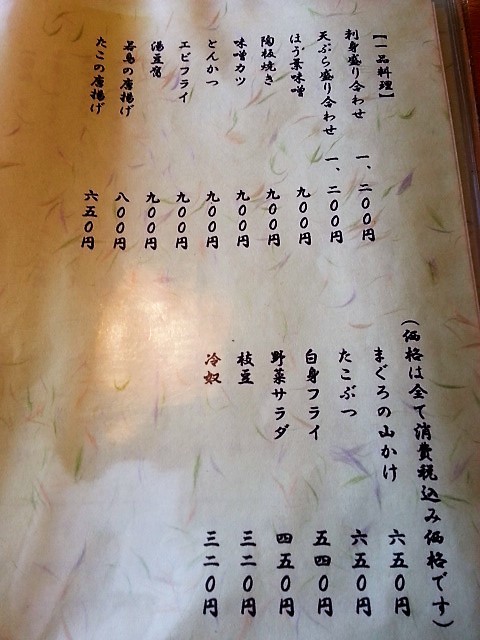 【一品料理】
刺身盛り合わせ 一、二〇〇円
天ぷら盛り合わせ 一、二〇〇円
ほう葉味噌 九〇〇円
陶板焼き 九〇〇円
味噌カツ 九〇〇円
とんかつ 九〇〇円
エビフライ 九〇〇円
湯豆腐 九〇〇円
若鳥の唐揚げ 八〇〇円
たこの唐揚げ 六五〇円
(価格は全て消費税込み価格です)
まぐろの山かけ 六五〇円
たこぶつ 六五〇円
白身フライ 五四〇円
野菜サラダ 四五〇円
枝豆 三二〇円
冷奴 三二〇円